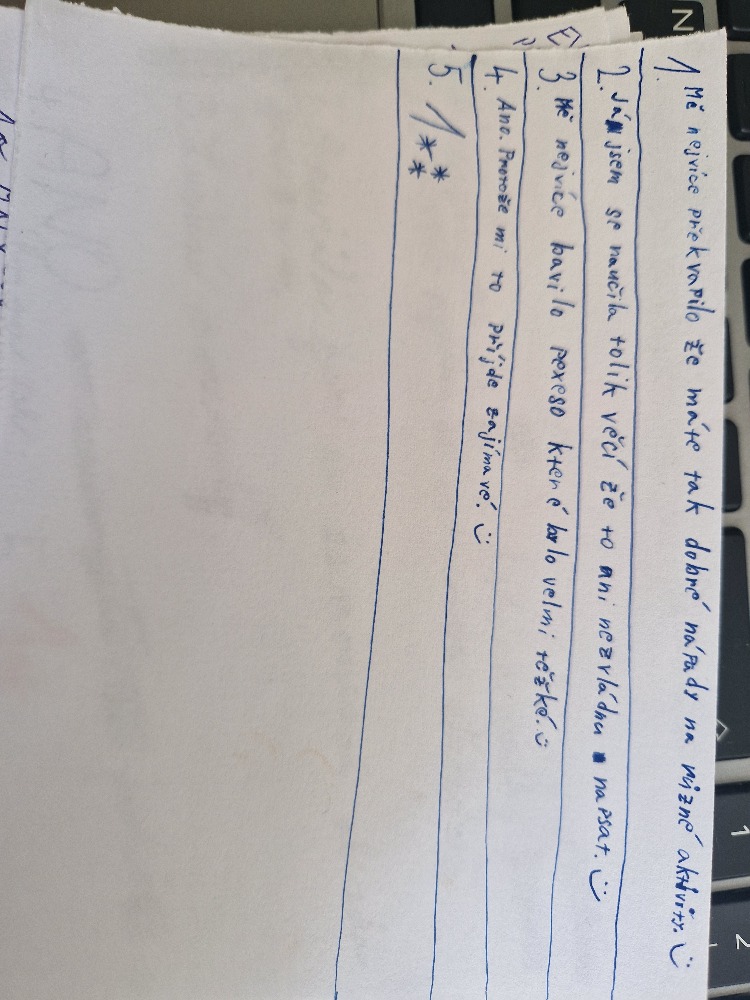 1. Mě nejvíce překvapilo že máte tak dobré nápady na různé aktivity. :)
2. Já jsem se naučila tolik věcí že to ani nezvládnu napsat. :)
3. Mě nejvíce bavilo pexeso které bylo velmi těžké. :)
4. Ano. Protože mi to příjde zajímavé. :)
5. 1***
N
1
2